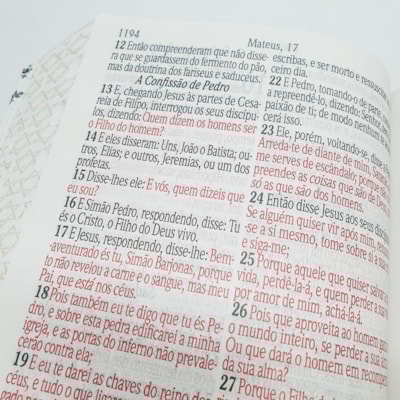 1194
Mateus, 17
12 Então compreenderam que não disse-
ra que se guardassem do fermento do pão,
mas da doutrina dos fariseus e saduceus.
A Confissão de Pedro
13 E, chegando Jesus às partes de Cesa-
reia de Filipo, interrogou os seus discípu-
los, dizendo: Quem dizem os homens ser
o Filho do homem?
14 E eles disseram: Uns, João o Batista; ou-
tros, Elias; e outros, Jeremias, ou um dos
profetas.
15 Disse-lhes ele: E vós, quem dizeis que
eu sou?
16 E Simão Pedro, respondendo, disse: Tu
és o Cristo, o Filho do Deus vivo.
17 E Jesus, respondendo, disse-lhe: Bem-
aventurado és tu, Simão Barjonas, porque
to não revelou a carne e o sangue, mas meu
Pai, que está nos céus.
18 Pois também eu te digo que tu és Pe-
dro, e sobre esta pedra edificarei a minha
igreja, e as portas do inferno não prevale-
cerão contra ela;
19 E eu te darei as chaves do reino dos
céus, e tudo o que ligares
escribas, e ser morto e ressus
ceiro dia.
22 E Pedro, tomando-o de par
a repreendê-lo, dizendo: Senhor
paixão de ti; de modo nenhum
cerá isso.
23 Ele, porém, voltando-se, disse a
Arreda-te de diante de mim, S
me serves de escândalo; porque n
preendes as coisas que são de D
só as que são dos homens.
24 Então disse Jesus aos seus disc
Se alguém quiser vir após mim,
-se a si mesmo, tome sobre si a su
e siga-me;
25 Porque aquele que quiser salvar
vida, perdê-la-á, e quem perder a su
por amor de mim, achá-la-á.
26 Pois que aproveita ao homem gan
o mundo inteiro, se perder a sua al
Ou que dará o homem em recomp
da sua alma?
27 Porque o Filho do